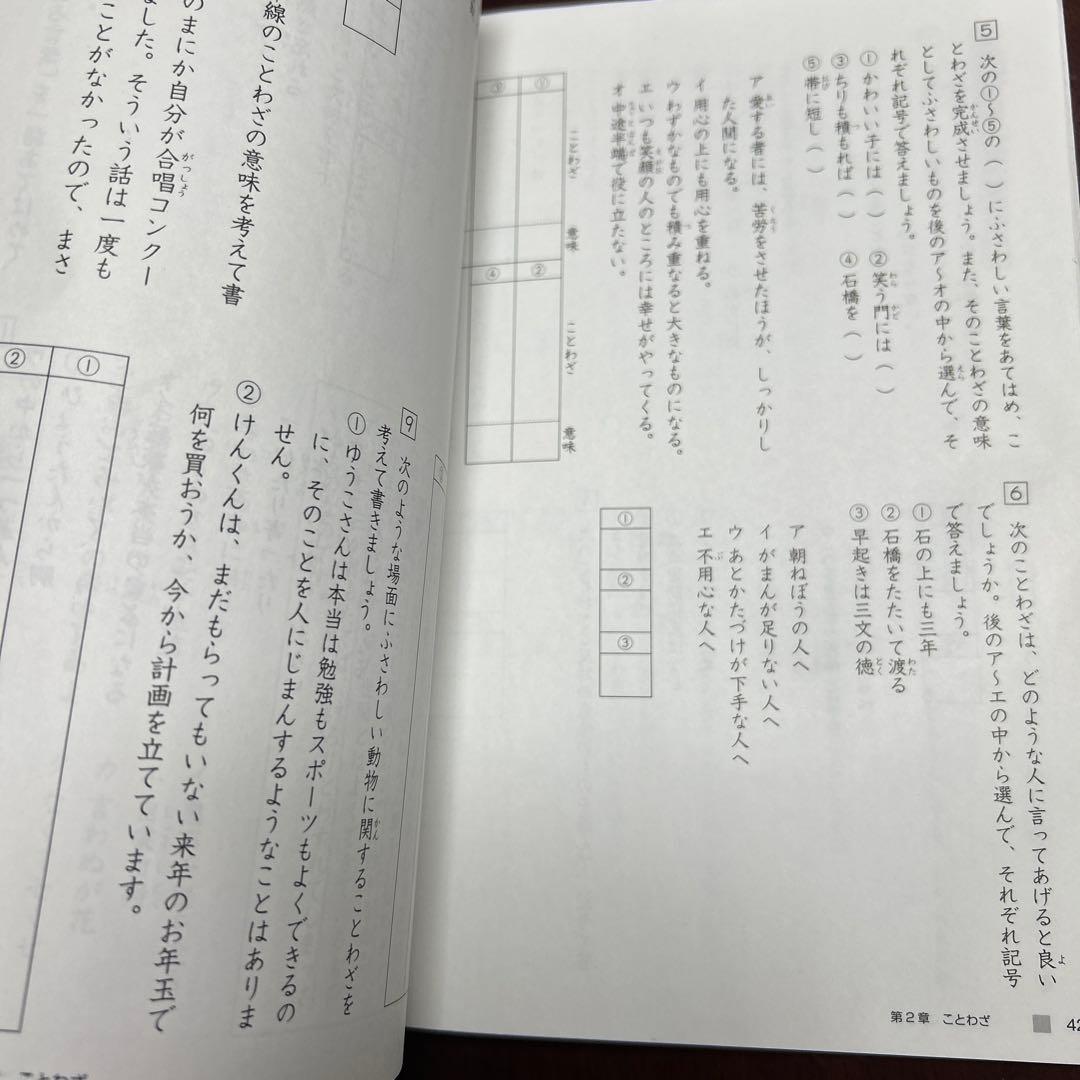 5 次の①〜⑤の（ ）にふさわしい言葉をあてはめ、こ
とわざを完成させましょう。また、そのことわざの意味
としてふさわしいものを後のア〜オの中から選んで、そ
れぞれ記号で答えましょう。
① かわいい子には（ ） ② 笑う門には（ ）
③ ちりも積もれば（ ） ④ 石橋を（ ）
⑤ 帯に短し（ ）
ア 愛する者には、苦労をさせたほうが、しっかりし
た人間になる。
イ 用心の上にも用心を重ねる。
ウ わずかなものでも積み重なると大きなものになる。
エ いつも笑顔の人のところには幸せがやってくる。
オ 中途半端で役に立たない。
ことわざ 意味 ことわざ 意味
① ②
③ ④
6 次のことわざは、どのような人に言ってあげると良い
でしょうか。後のア〜エの中から選んで、それぞれ記号
で答えましょう。
① 石の上にも三年
② 石橋をたたいて渡る
③ 早起きは三文の徳
ア 朝ねぼうの人へ
イ がまんが足りない人へ
ウ あとかたづけが下手な人へ
エ 不用心な人へ
① ② ③
第2章 ことわざ 42
線のことわざの意味を考えて書
のまにか自分が合唱コンクー
ました。そういう話は一度も
ことがなかったので、まさ
9 次のような場面にふさわしい動物に関することわざを
考えて書きましょう。
① ゆうこさんは本当は勉強もスポーツもよくできるの
に、そのことを人にじまんするようなことはありま
せん。
② けんくんは、まだもらってもいない来年のお年玉で
何を買おうか、今から計画を立てています。
①
②
ことわざ